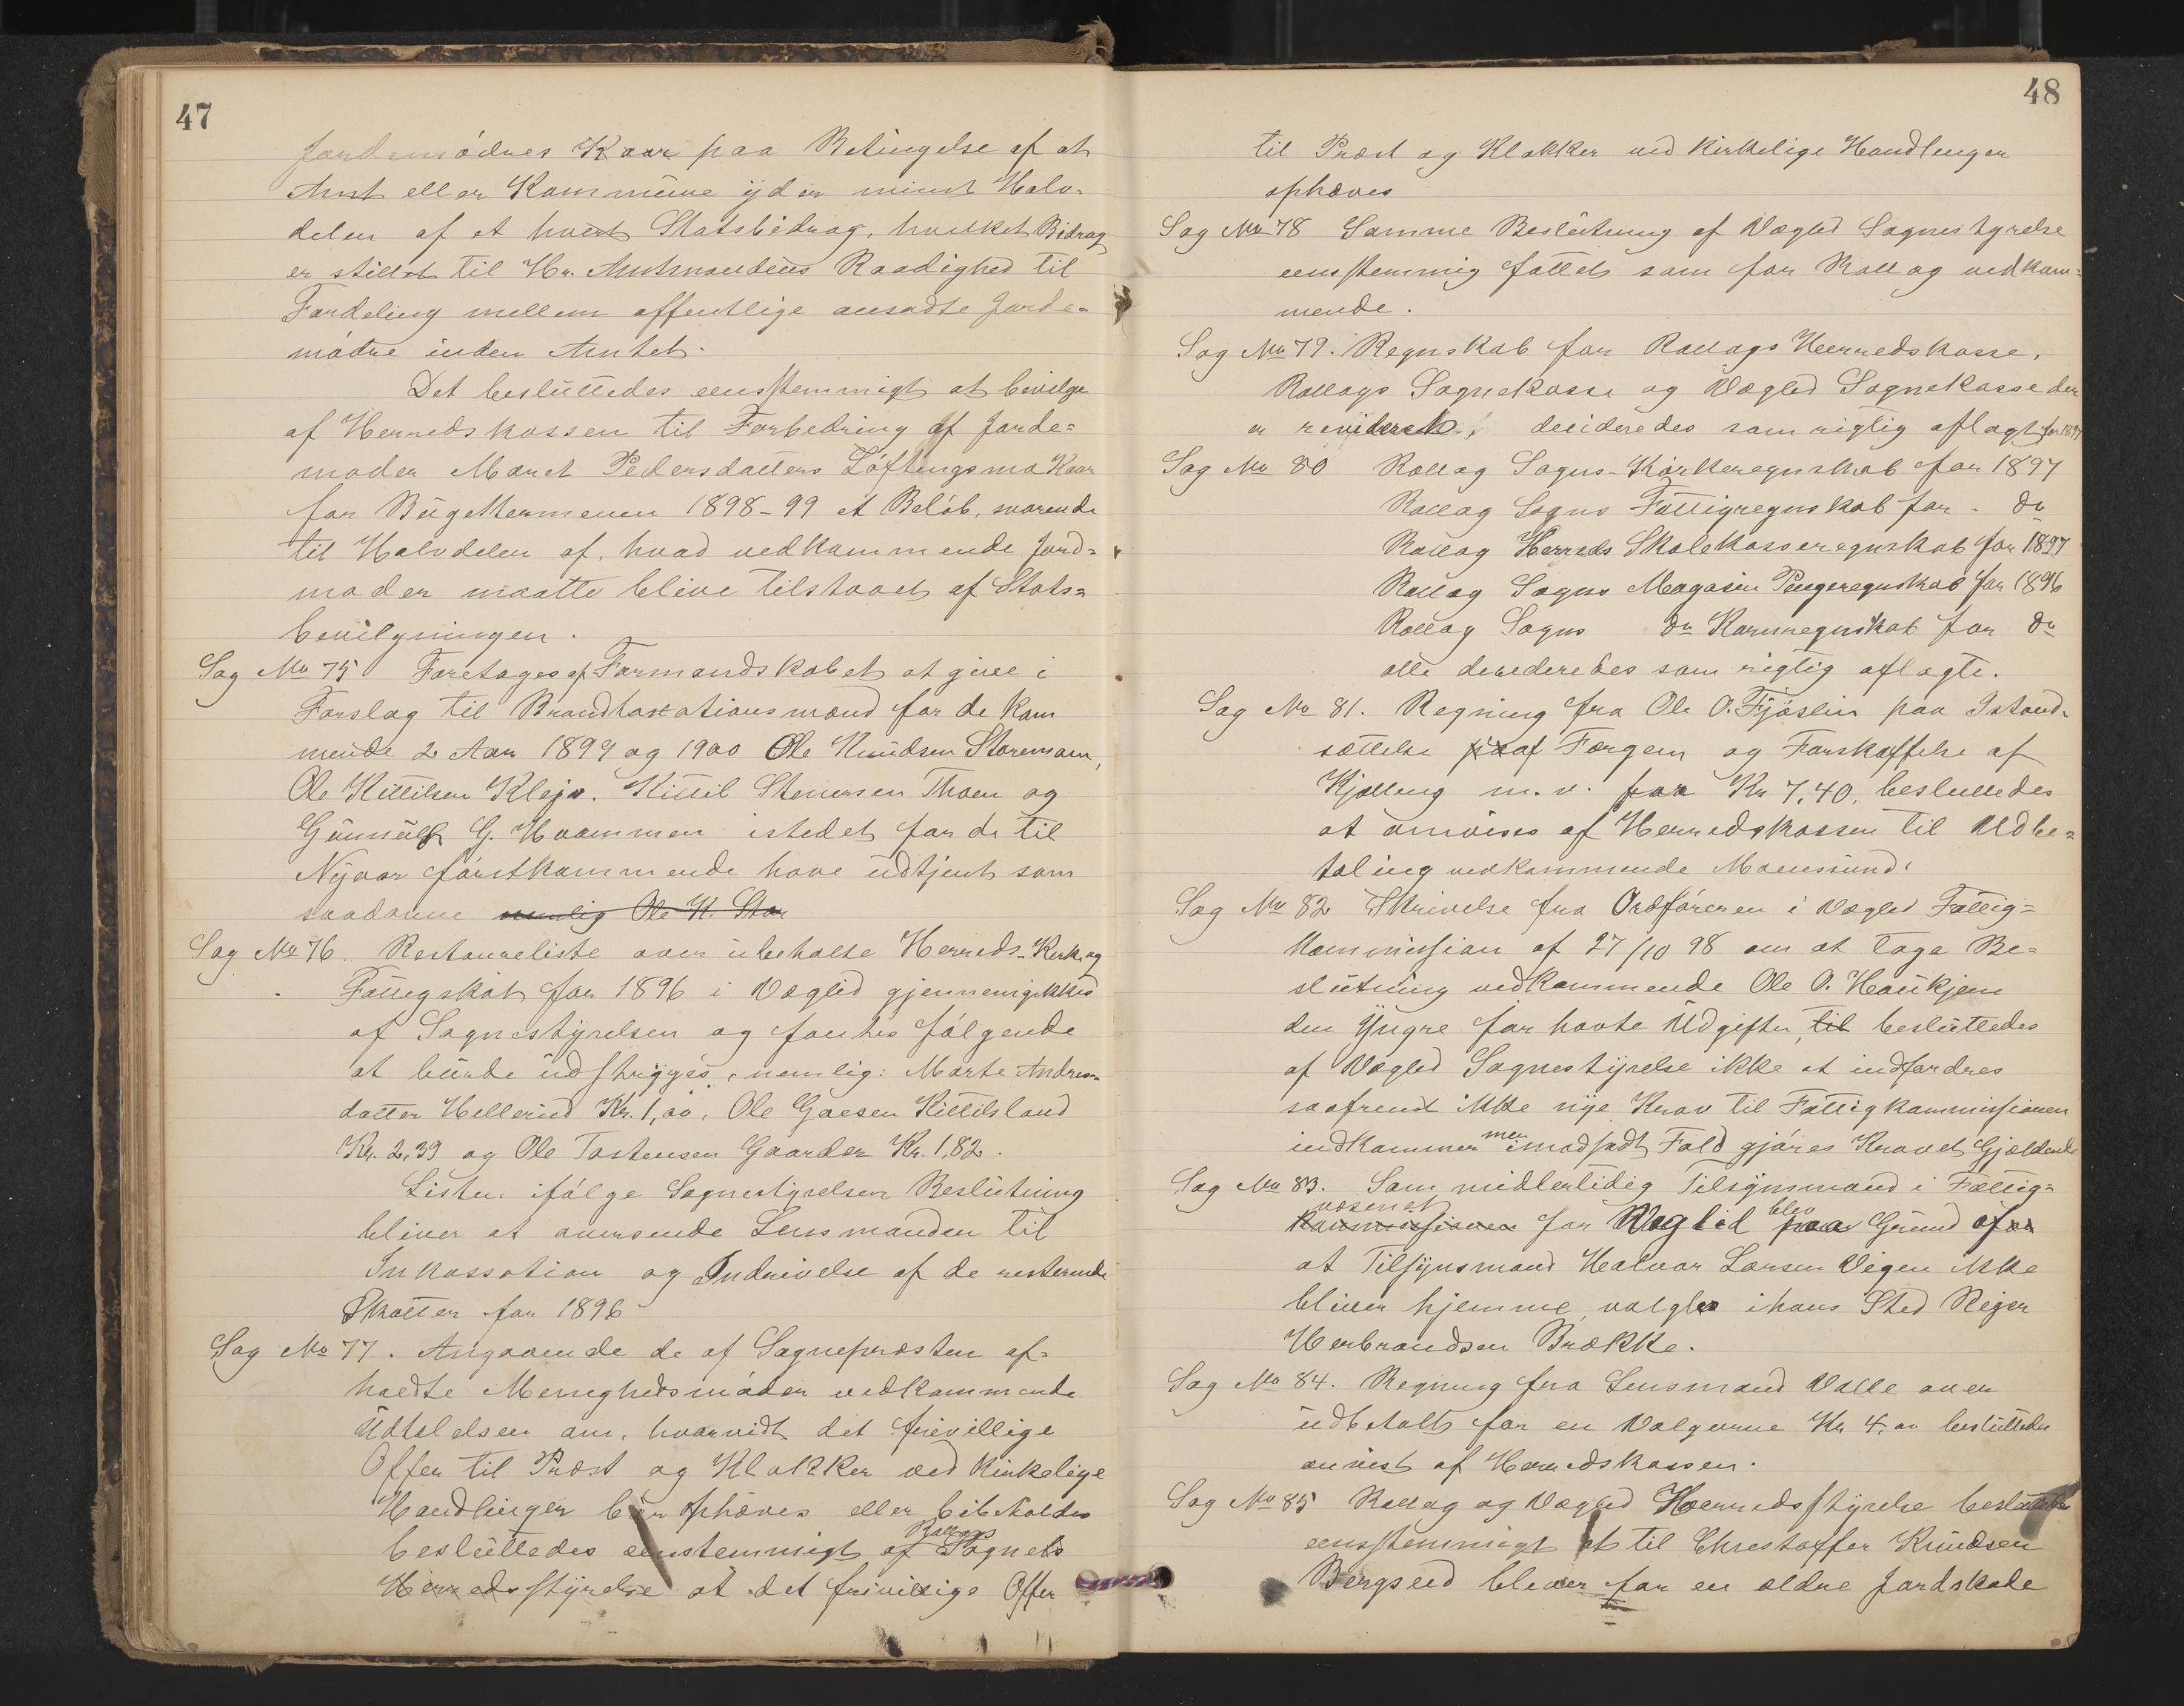 47
Jordemødres Kaar paa Betingelse af at
Amt eller Kommune yder mindst Halv-
delen af et hvert Statsbidrag, hvilket Bidrag
er stillet til Hr. Amtmandens Raadighed til
Fordeling mellem offentlige ansadte Jorde=
mødre inden Amtet.
Det besluttedes eenstemmigt at bevilge
af Herredskassen til Forbedring af Jorde=
moder Maret Pedersdatters Løftingsmo Kaar
for Bügetterminen 1898-99 et Beløb, svarende
til Halvdelen af, hvad vedkommende Jord=
moder maatte blive tilstaaet af Stats=
bevilgningen.
Sag No 75 Foretoges af Formandskabet at give i
Forslag til Brandtaxationsmænd for de kom
mende 2 Aar 1899 og 1900 Ole Knudsen Storemoen,
Ole Kittilsen Kleja. Kittil Stenersen Thoen og
Günnülf G. Haammen istedet for de til
Nyaar førstkommende have üdtjent som
saadanne nemlig Ole K. Stor
Sag No 76. Restanceliste over übetalte Herreds- Kirk og
Fattigskat for 1896 i Væglid gjennemgikkes
af Sognestyrelsen og fantes følgende
at bürde üdstryges, nemlig: Marte Andres-
datter Hellerüd Kr. 1,00, Ole Goesen Kittilsland
Kr. 2,39 og Ole Tostensen Gaarder Kr. 1,82.
Listen ifølge Sognestyrelsen Beslütning
bliver at oversende Lensmanden til
Inkassation og Inddrivelse af de resterende
Skatter for 1896
Sag No 77. Angaaende de af Sognepræsten af=
holdte Menighedsmøder vedkommende
Üdtalelsen om, hvorvidt det frivillige
Offer til Præst og Klokker ved Kirkelige
Handlinger bør ophæves eller bibeholdes
beslüttedes eenstemmigt af Rollags Sognets
Herredsstyrelse at det frivillige Offer
48
til Præst og Klokker ved kirkelige Handlinger
ophæves
Sag No 78 Samme Beslutning af Væglid Sognestyrelse
eenstemmig fattet som for Rollag vedkom=
mende.
Sag No 79. Regnskab for Rollags Herredskasse,
Rollags Sognekasse og Væglid Sognekasse der
er revideret, decideredes som rigtig aflagt for 1897
Sag No 80 Rollag Sogns-Kirkeregnskab for 1897
Rollag Sogns Fattigregnskab for - do
Rollag Herreds Skolekasseregnskab for 1897
Rollag Sogns Magasin Pengeregnskab for 1896
Rollag Sogns do Kornregnskab for do
alle decideredes som rigtig aflagte.
Sag No 81. Regning fra Ole O. Fjøslin paa Istand-
sættelse paa af Færgen og Forskaffelse af
Kjætting m.v. paa Kr 7,40, besluttedes
at anvises af Herredskassen til Udbe=
taling vedkommende Moensund.
Sag No 82 Skrivelse fra Ordføreren i Væglid Fattig=
kommission af 27/10 98 om at tage Be=
slütning vedkommende Ole O. Haukjem
den Yngre for havte Üdgifter, til beslüttedes
af Væglid Sognestyrelse ikke at indfordres
saafremt ikke nye Krav til Fattigkommissionen
indkommer men imodsadt Fald gjøres Kravet Gjældende
Sag No 83. Som midlertidig Tilsynsmand i Fattig=
væsenet Kommissionen for Væglid blev paa Grund af
at Tilsynsmand Halvor Larsen Vegen ikke
bliver hjemme valgtes i hans Sted Reier
Herbrandsen Brække.
Sag No 84. Regning fra Lensmand Valle over
üdbetalt for en Valgurne Kr. 4,00 beslüttedes
anvist af Herredskassen.
Sag No 85 Rollag og Væglid Herredsstyrelse besluttedes
eenstemmigt at til Christoffer Knüdsen
Bergseid bliver for en ældre Jordskade